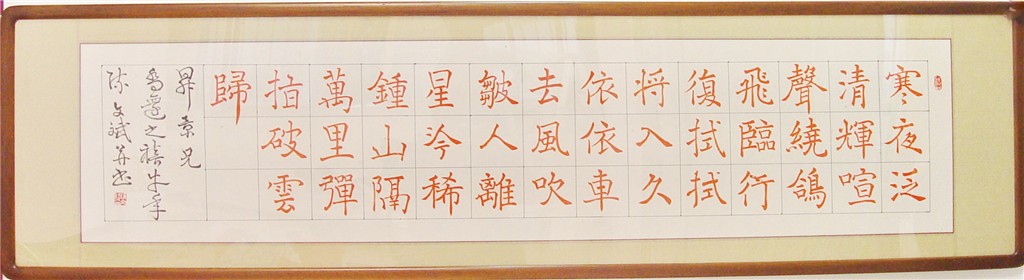 寒夜泛
清輝喧
聲繞鴿
飛臨行
復拭拭
將入久
依依車
去風吹
皺人離
星冷稀
鍾山隔
萬里彈
指破雲
歸
昇景兄
喬遷之禧牛年
陳文斌并書